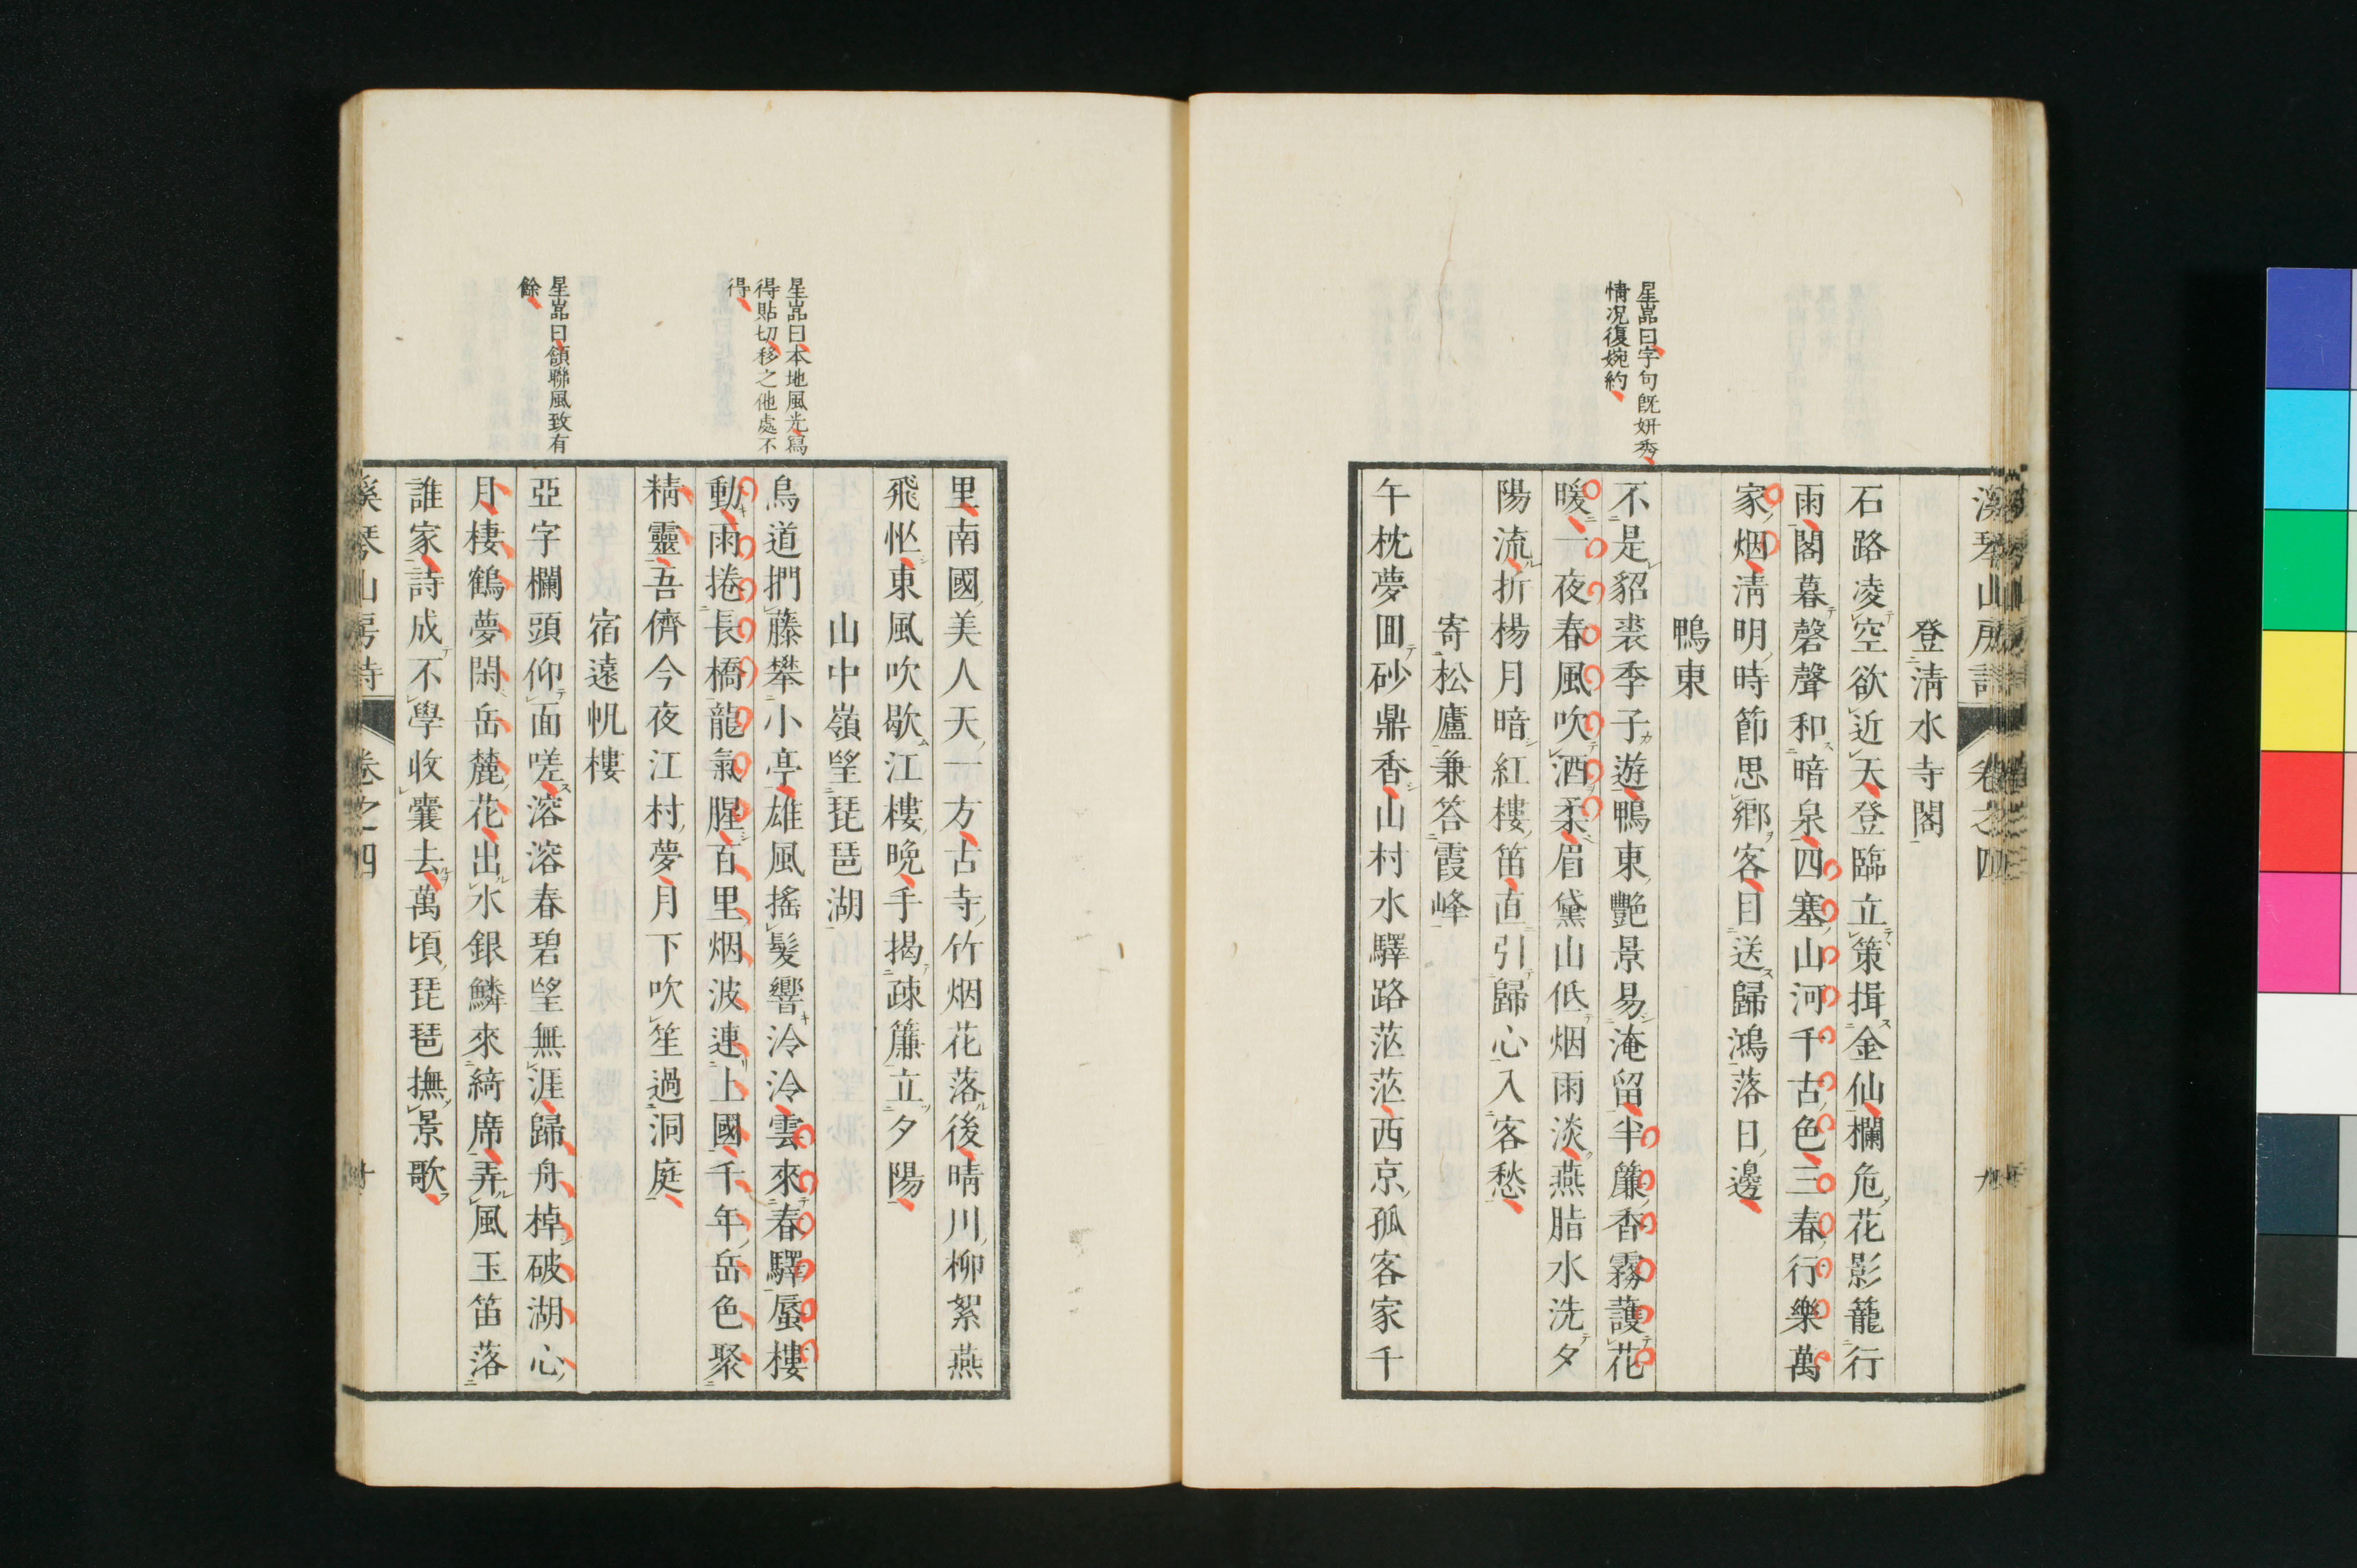 溪琴山房詩 卷之四 九
登清水寺閣
石路凌空欲近天登臨立策揖金仙欄危花影籠行
雨閣暮磬聲和暗泉四塞山河千古色三春行樂萬
家烟淸明時節思鄉客目送歸鴻落日邊
鴨東
星巖曰字句既妍秀
情况復婉約
不是貂裘季子遊鴨東艷景易淹留半簾香霧護花
暖一夜春風吹酒柔眉黛山低烟雨淡燕脂水洗夕
陽流折楊月暗紅樓笛直引歸心入客愁
寄松廬兼答霞峰
午枕夢囬砂鼎香山村水驛路茫茫西京孤客家千
里南國美人天一方古寺竹烟花落後晴川柳絮燕
飛忙東風吹歇江樓晩手揭疎簾立夕陽
山中嶺望琵琶湖
星巖曰本地風光寫
得貼切移之他處不
得
鳥道捫藤攀小亭雄風搖髮響泠泠雲來春驛蜃樓
動雨捲長橋龍氣腥百里烟波連上國千年岳色聚
精靈吾儕今夜江村夢月下吹笙過洞庭
宿遠帆樓
星巖曰頷聯風致有
餘
亞字欄頭仰面嗟溶溶春碧望無涯歸舟棹破湖心
月棲鶴夢閑岳麓花出水銀鱗來綺席弄風玉笛落
誰家詩成不學收囊去萬頃琵琶撫景歌
溪琴山房詩 卷之四 十